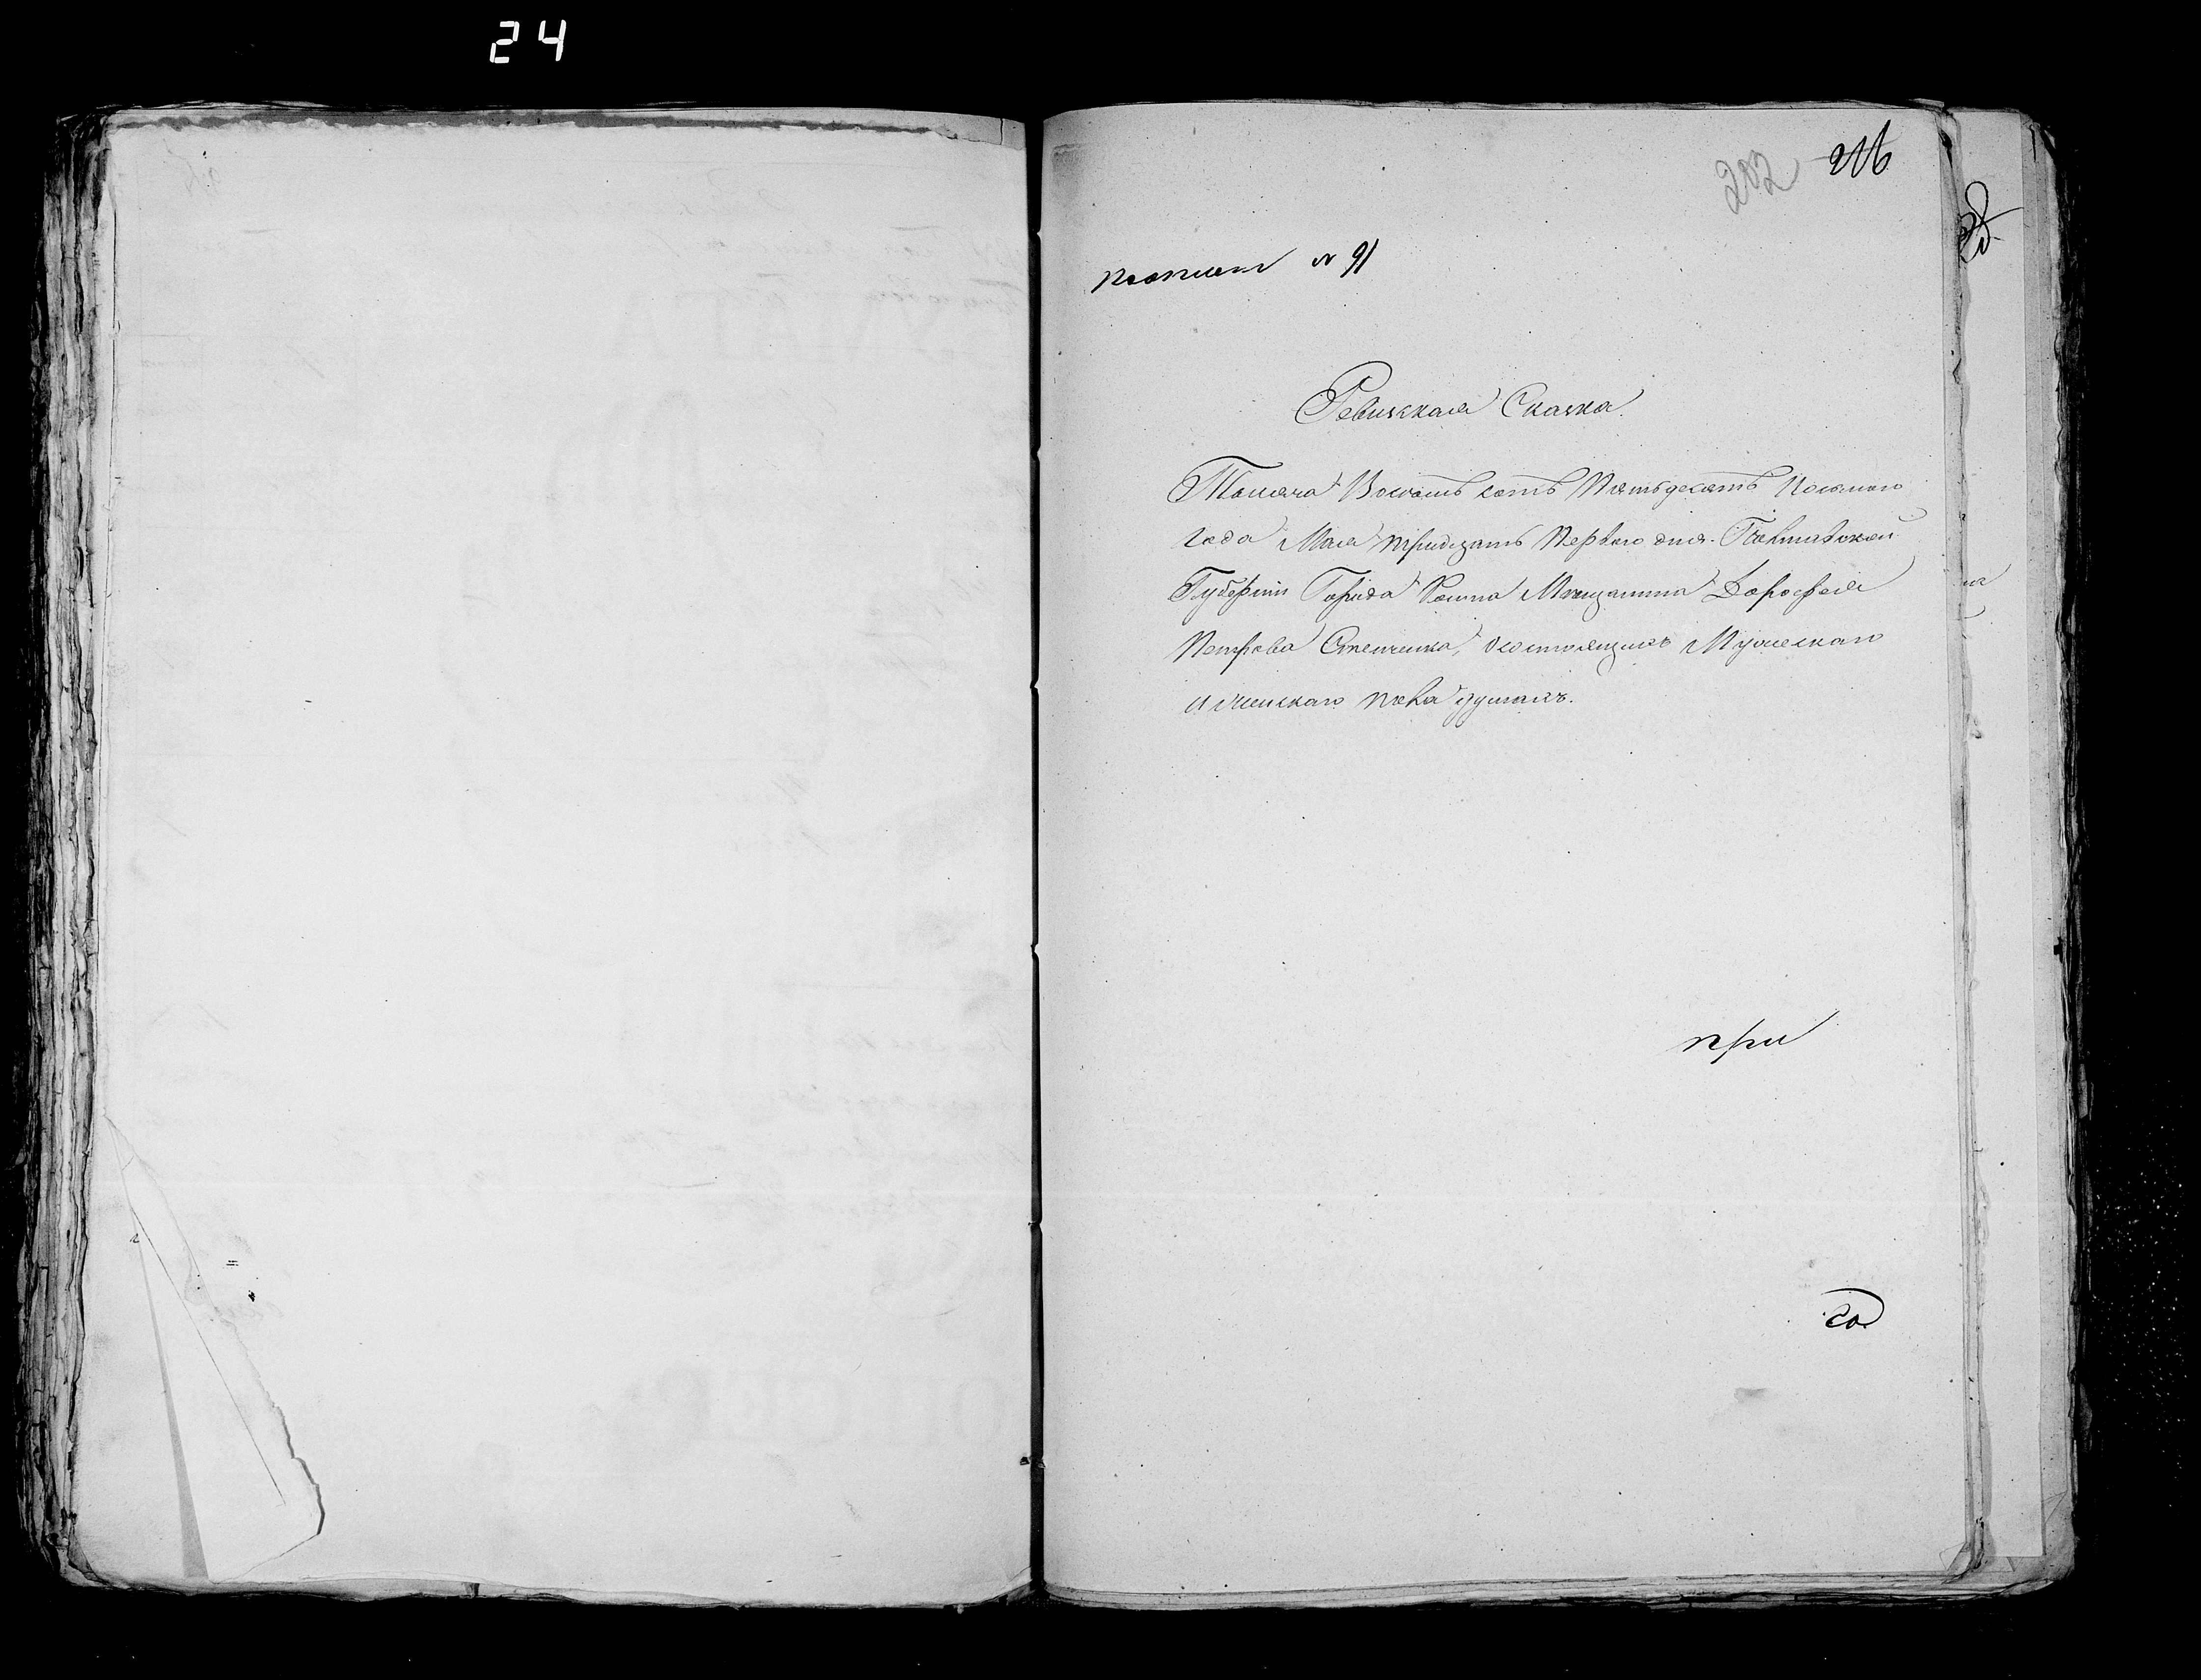 24
202 216
№ 91
Ревизская Сказка.
Тысяча Восемь сотъ Пятьдесятъ Восьмого
года Мая тридцать Первого дня. Полтавской
Губерніи Города Ромна Мещанина Дорофея
Петрова Стеченка, о состоящихъ Мужескаго
и женскаго пола душахъ.
при